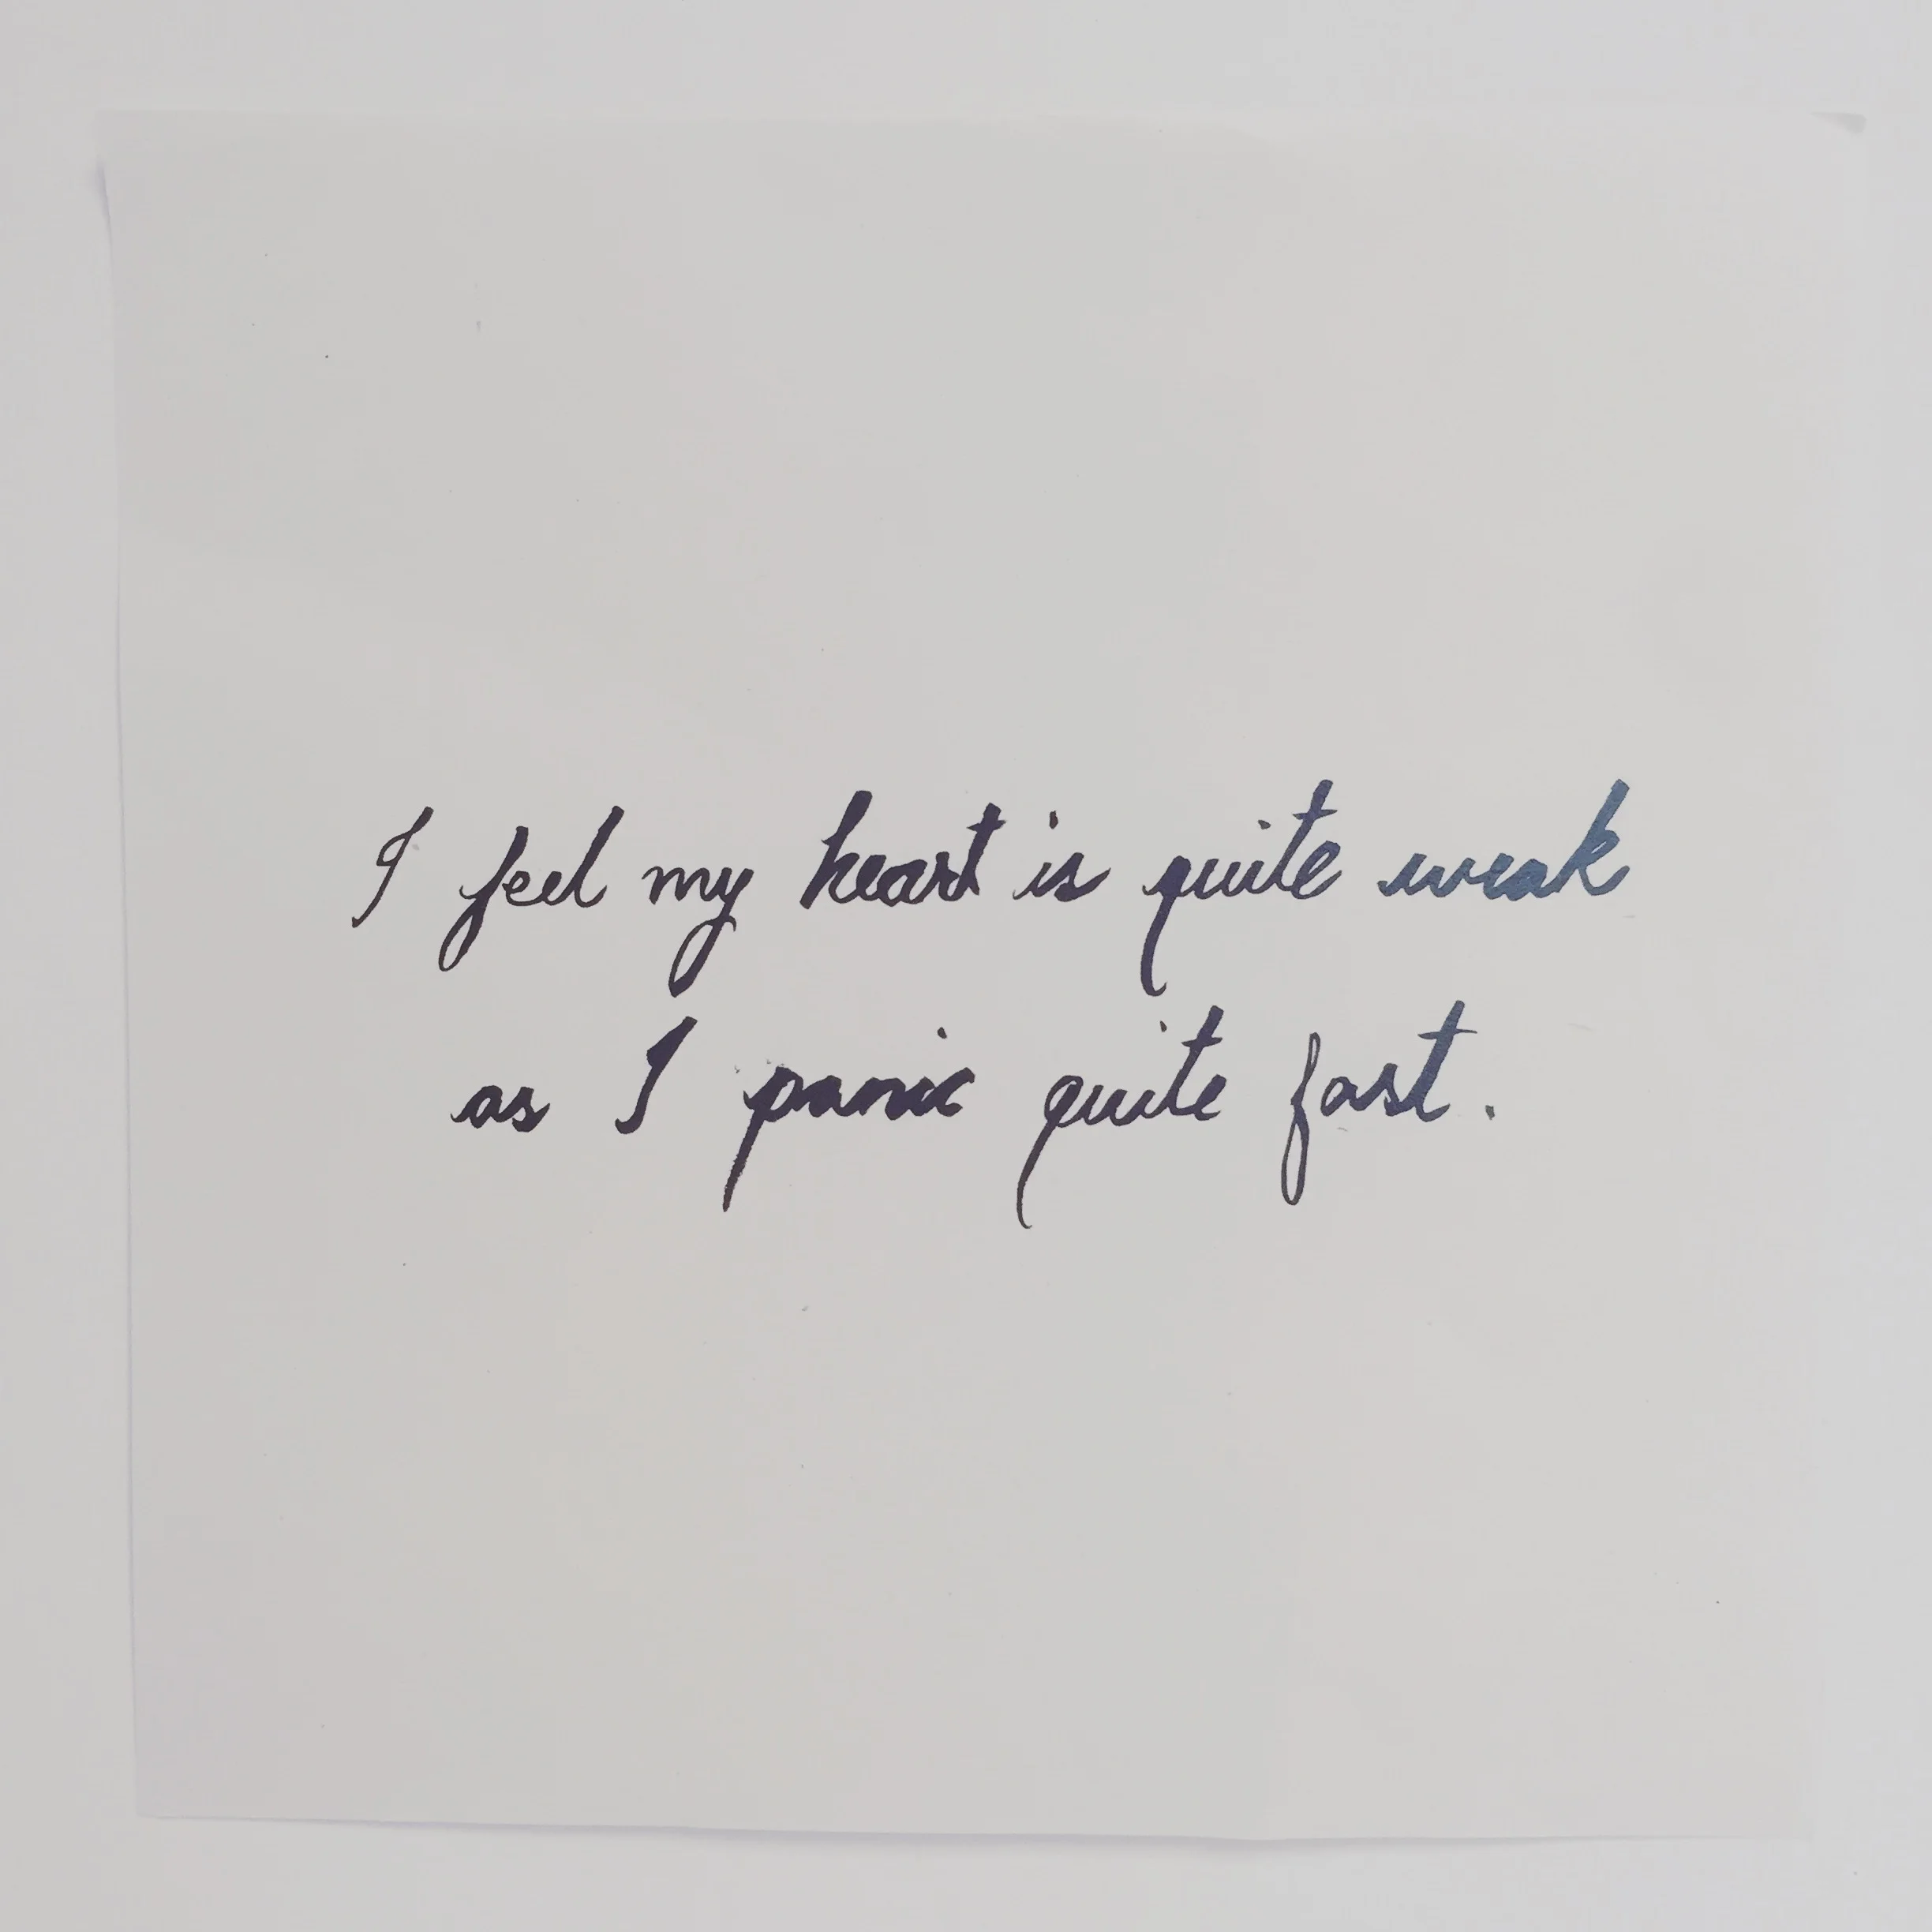 I feel my heart is quite weak
as I panic quite fast.